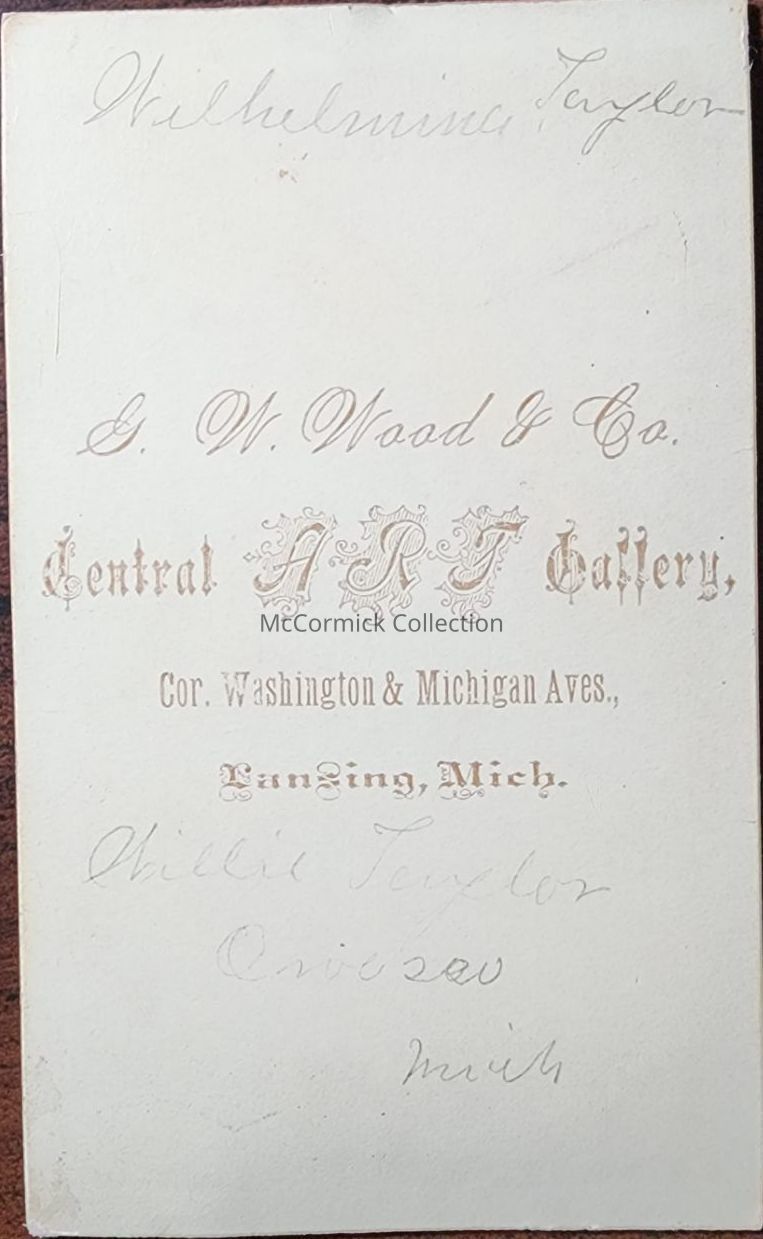 Wilhelmina Taylor
G. W. Wood & Co.
Central ART Gallery,
McCormick Collection
Cor. Washington & Michigan Aves.,
Lansing, Mich.
Willie Taylor
Owosso
Mich